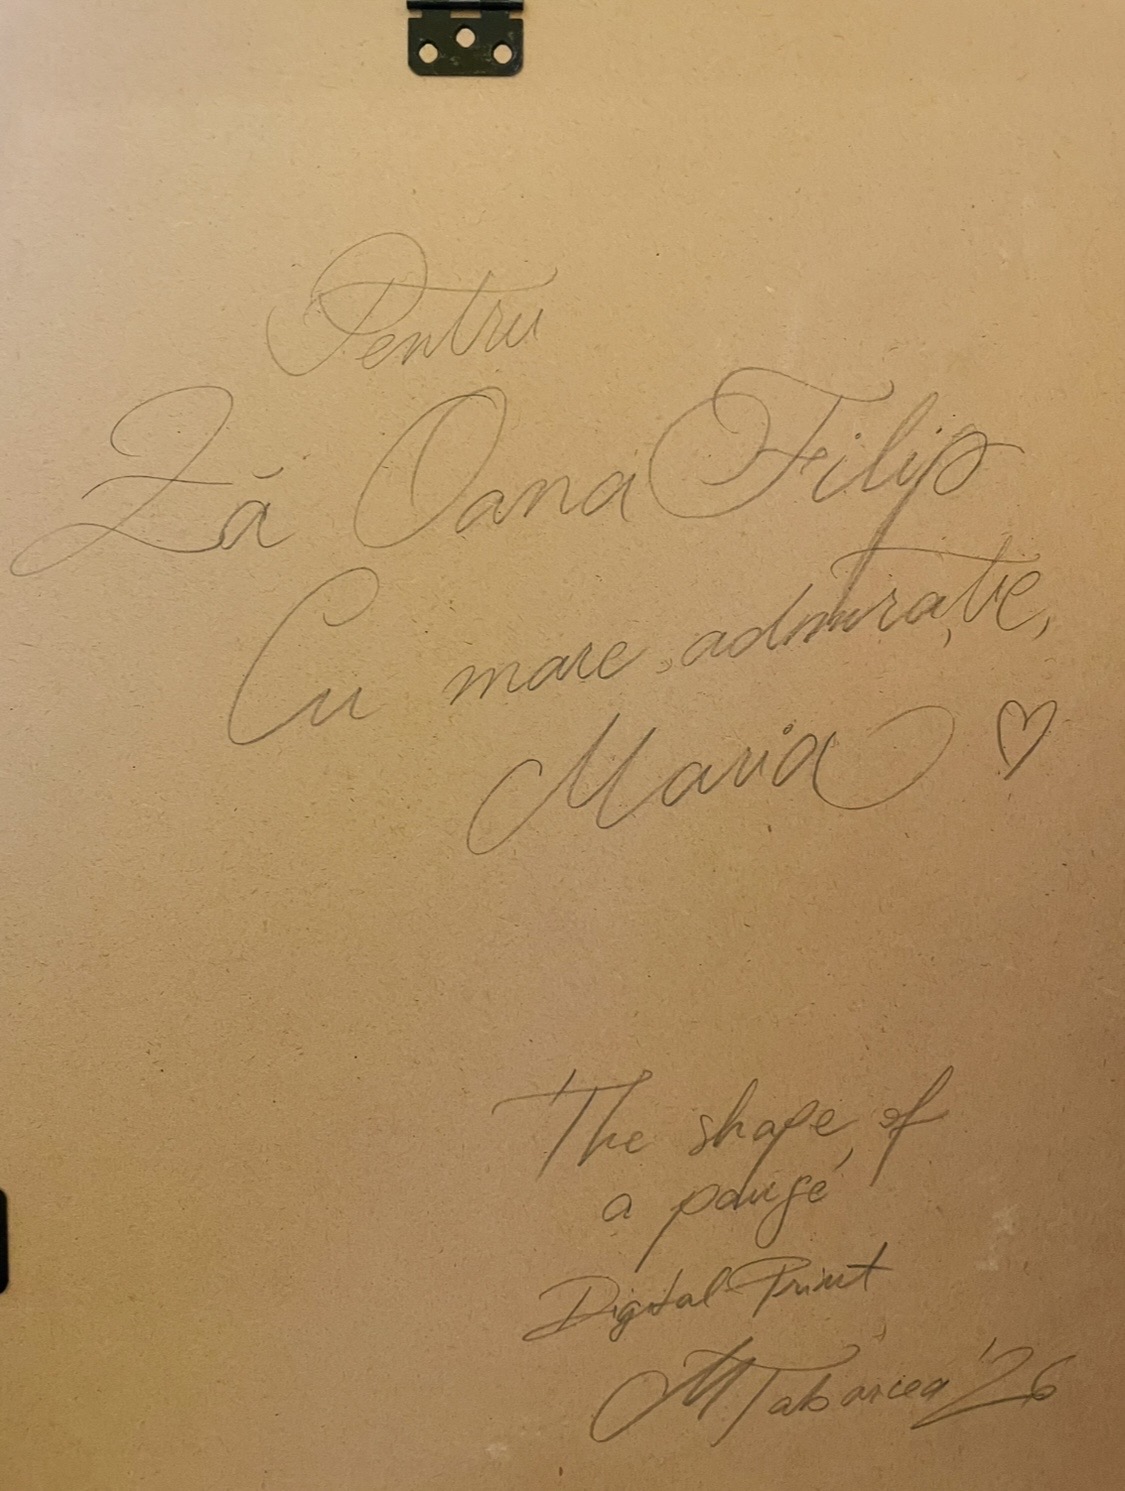 Pentru
Ză Oana Filip
Cu mare admirație,
Maria ♡
The shape of
a pause
Digital Print
MTabarcea '26